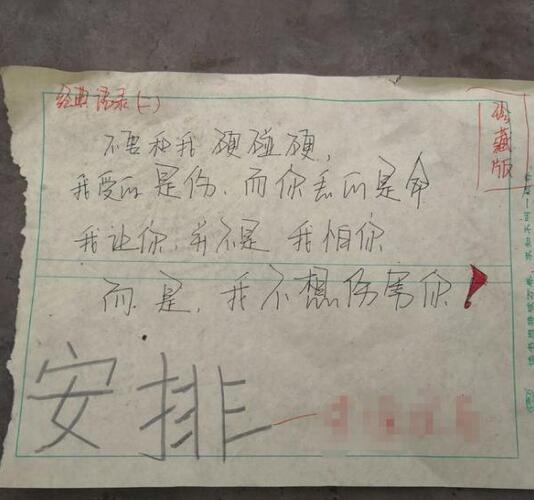 经典语录(二)
珍藏版
不要和我硬碰硬,
我受的是伤.而你丢的是命
我让你.并不是我怕你
而是,我不想伤害你!
安排